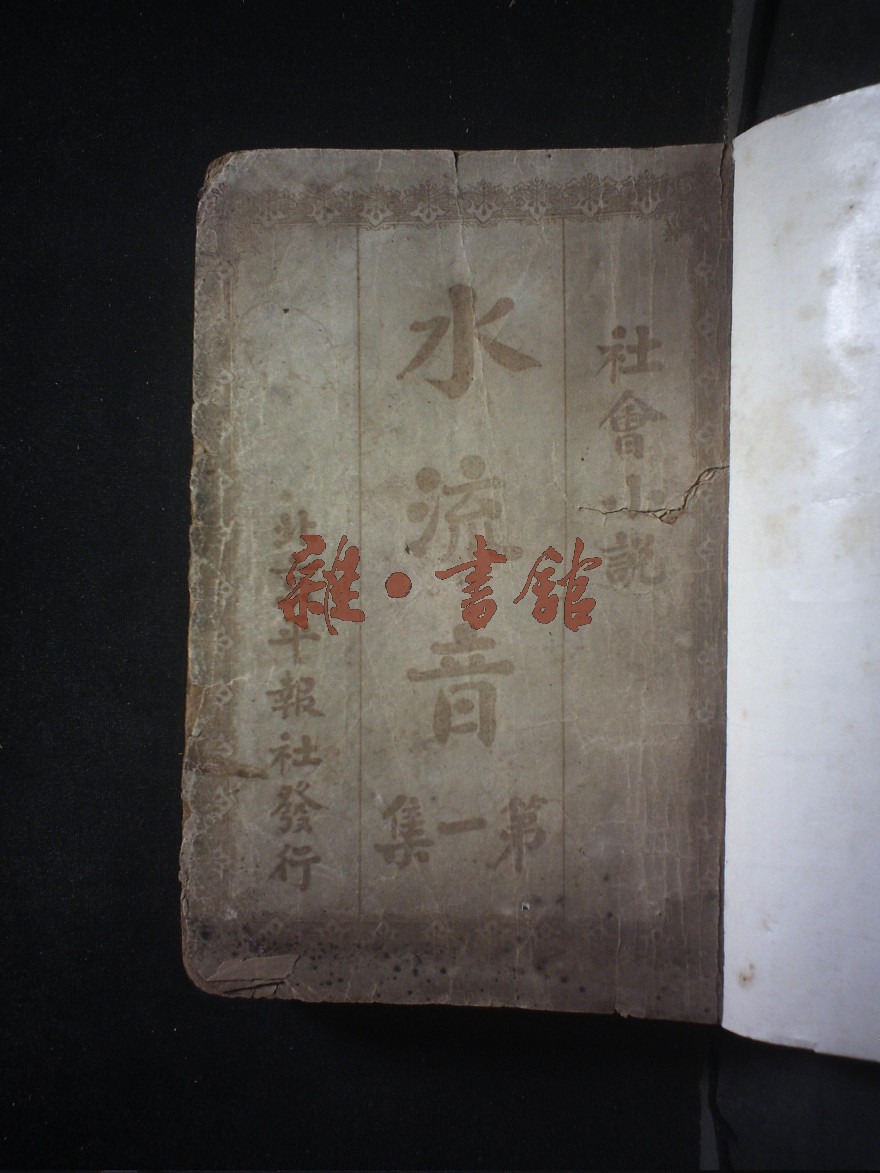 社會小說
水流音
第一集
北平報社發行
雜·書館